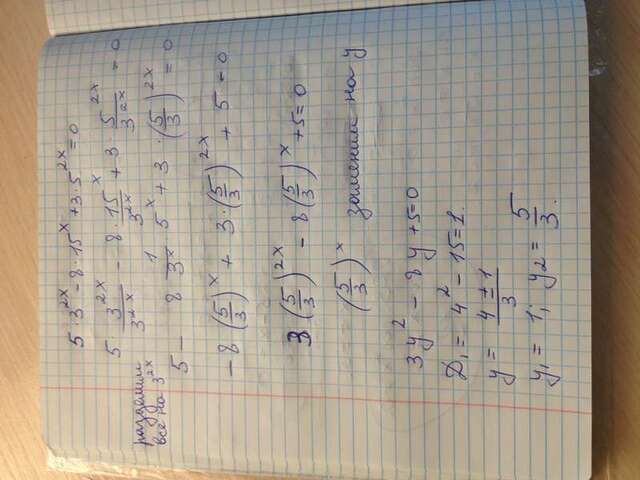 5 · 3^{2x} - 8 · 15^x + 3 · 5^{2x} = 0
5 · \frac{3^{2x}}{3^{2x}} - \frac{8 · 15^x}{3^{2x}} + 3 · \frac{5^{2x}}{3^{2x}} = 0
разделим
все на 3^{2x}
5 - 8 \frac{1}{3^x} 5^x + 3 · (\frac{5}{3})^{2x} = 0
-8 (\frac{5}{3})^x + 3 · (\frac{5}{3})^{2x} + 5 = 0
3 (\frac{5}{3})^{2x} - 8 (\frac{5}{3})^x + 5 = 0
(\frac{5}{3})^x заменим на y
3y^2 - 8y + 5 = 0
D_1 = 4^2 - 15 = 1.
y = \frac{4 ± 1}{3}
y_1 = 1; y_2 = \frac{5}{3}.